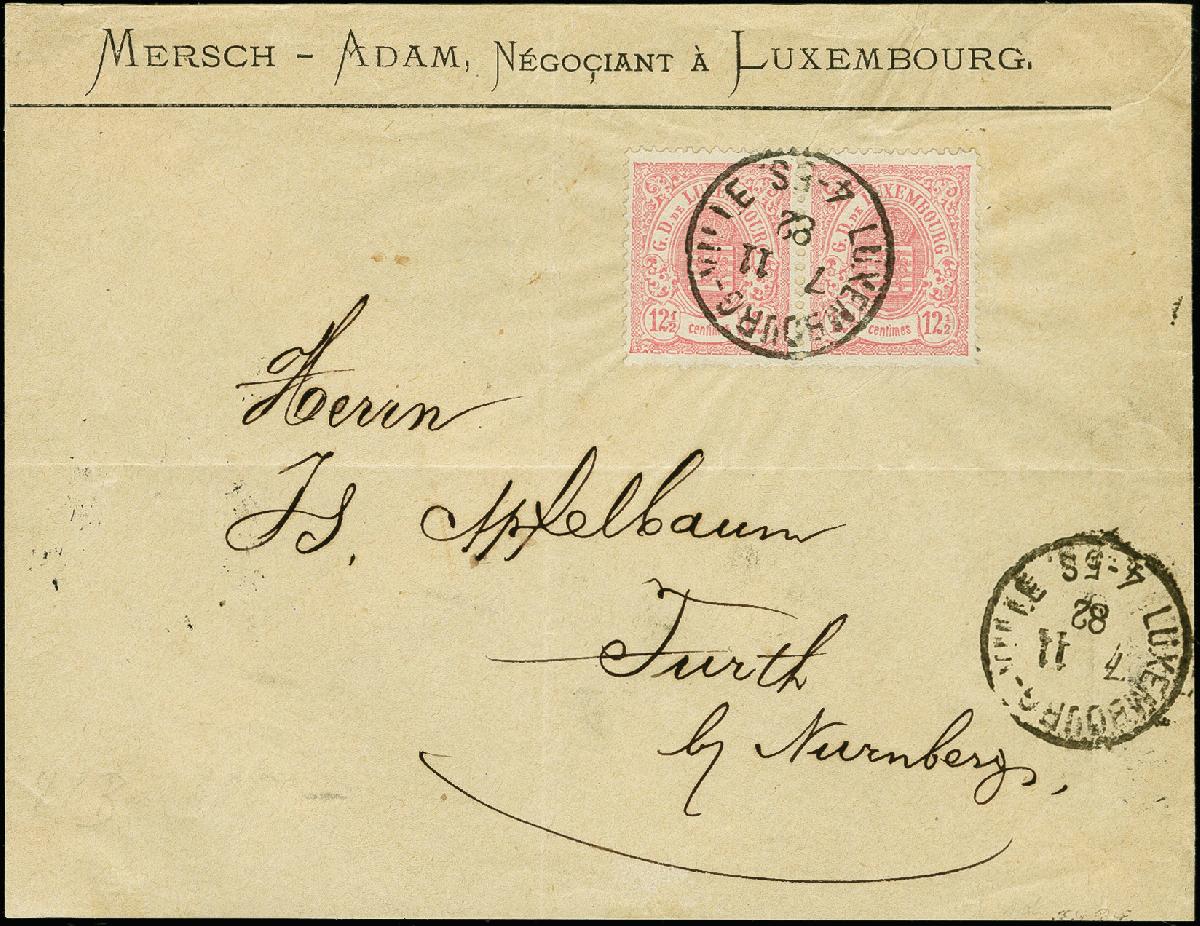 MERSCH - ADAM, NÉGOÇIANT À LUXEMBOURG.
G. D. DE LUXEMBOURG
12½ centimes
G. D. DE LUXEMBOURG
centimes 12½
LUXEMBOURG-VILLE
4-5S.
7 11
82
Herrn
Is. Apfelbaum
Furth
by Nurnberg,
LUXEMBOURG-VILLE
4-5S.
7 11
82